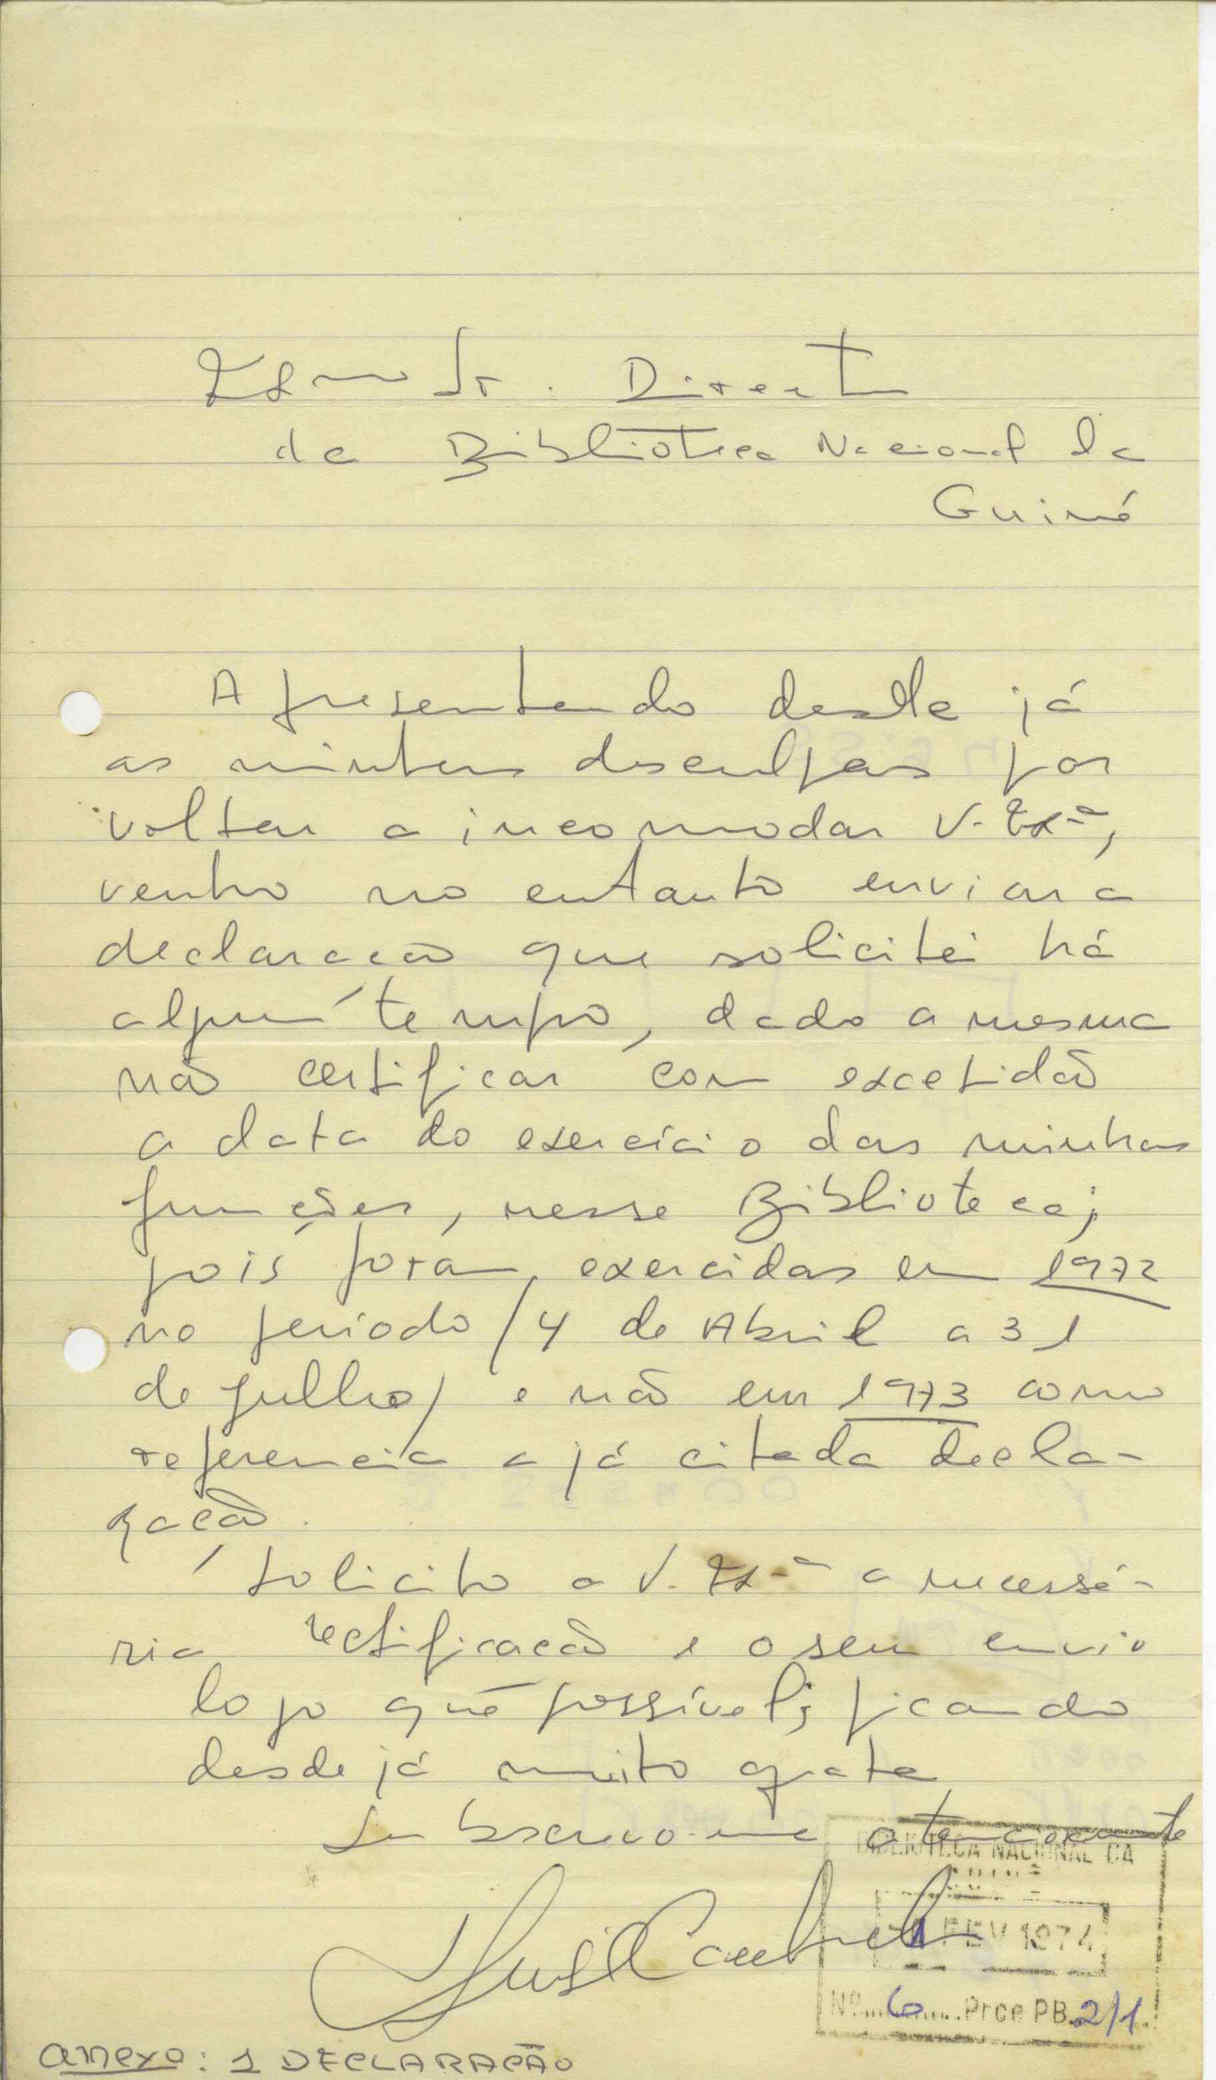 Exmo Sr. Director
da Biblioteca Nacional da
Guiné
Apresentando desde já
as minhas desculpas por
voltar a incomodar V. Exª,
venho no entanto enviar a
declaração que solicitei há
algum tempo, dado a mesma
não certificar com exactidão
a data do exercício das minhas
funções, nessa Biblioteca;
pois foram exercidas em 1972
no período /4 de Abril a 31
de Julho/ e não em 1973 como
referencia a já citada decla-
ração.
Solicito a V. Exª a necessá-
ria rectificação e o seu envio
logo que possível; ficando
desde já muito grata
Subscrevo-me atenciosamente
BIBLIOTECA NACIONAL DA
GUINÉ
1 FEV 1974
Nº 6 Proc PB. 2/1
anexo: 1 DECLARAÇÃO